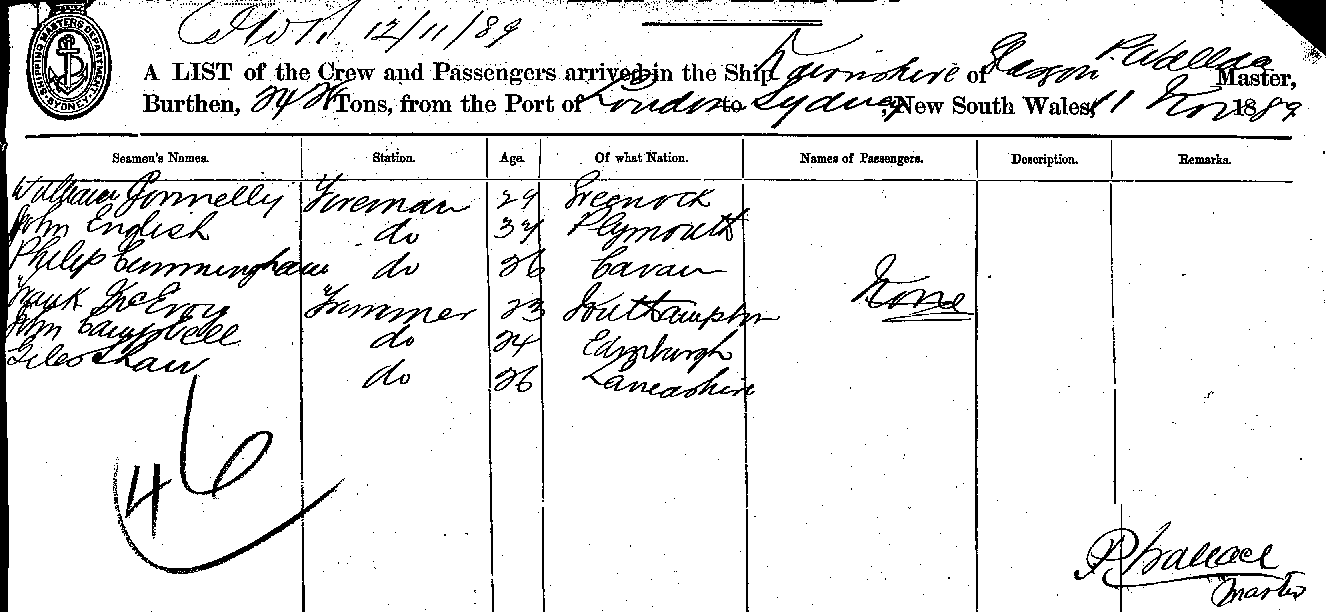 12/11/89
SHIPPING MASTERS DEPARTMENT SYDNEY
A LIST of the Crew and Passengers arrived in the Ship Cairnshire of Glasgow P. Wallace Master,
Burthen, 2426 Tons, from the Port of London to Sydney, New South Wales, 11 Nov 1889
Seamen's Names. Station. Age. Of what Nation. Names of Passengers. Description. Remarks.
William Connelly Foreman 29 Greenock
John English do 34 Plymouth
Philip Cunningham do 26 Cavan
Frank McEvoy Trimmer 23 Southampton None
John Campbell do 24 Edinburgh
Giles Shaw do 26 Lancashire
46
P Wallace
Master